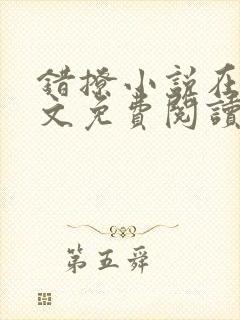 错撩小说在
文免費閱讀
第五舜